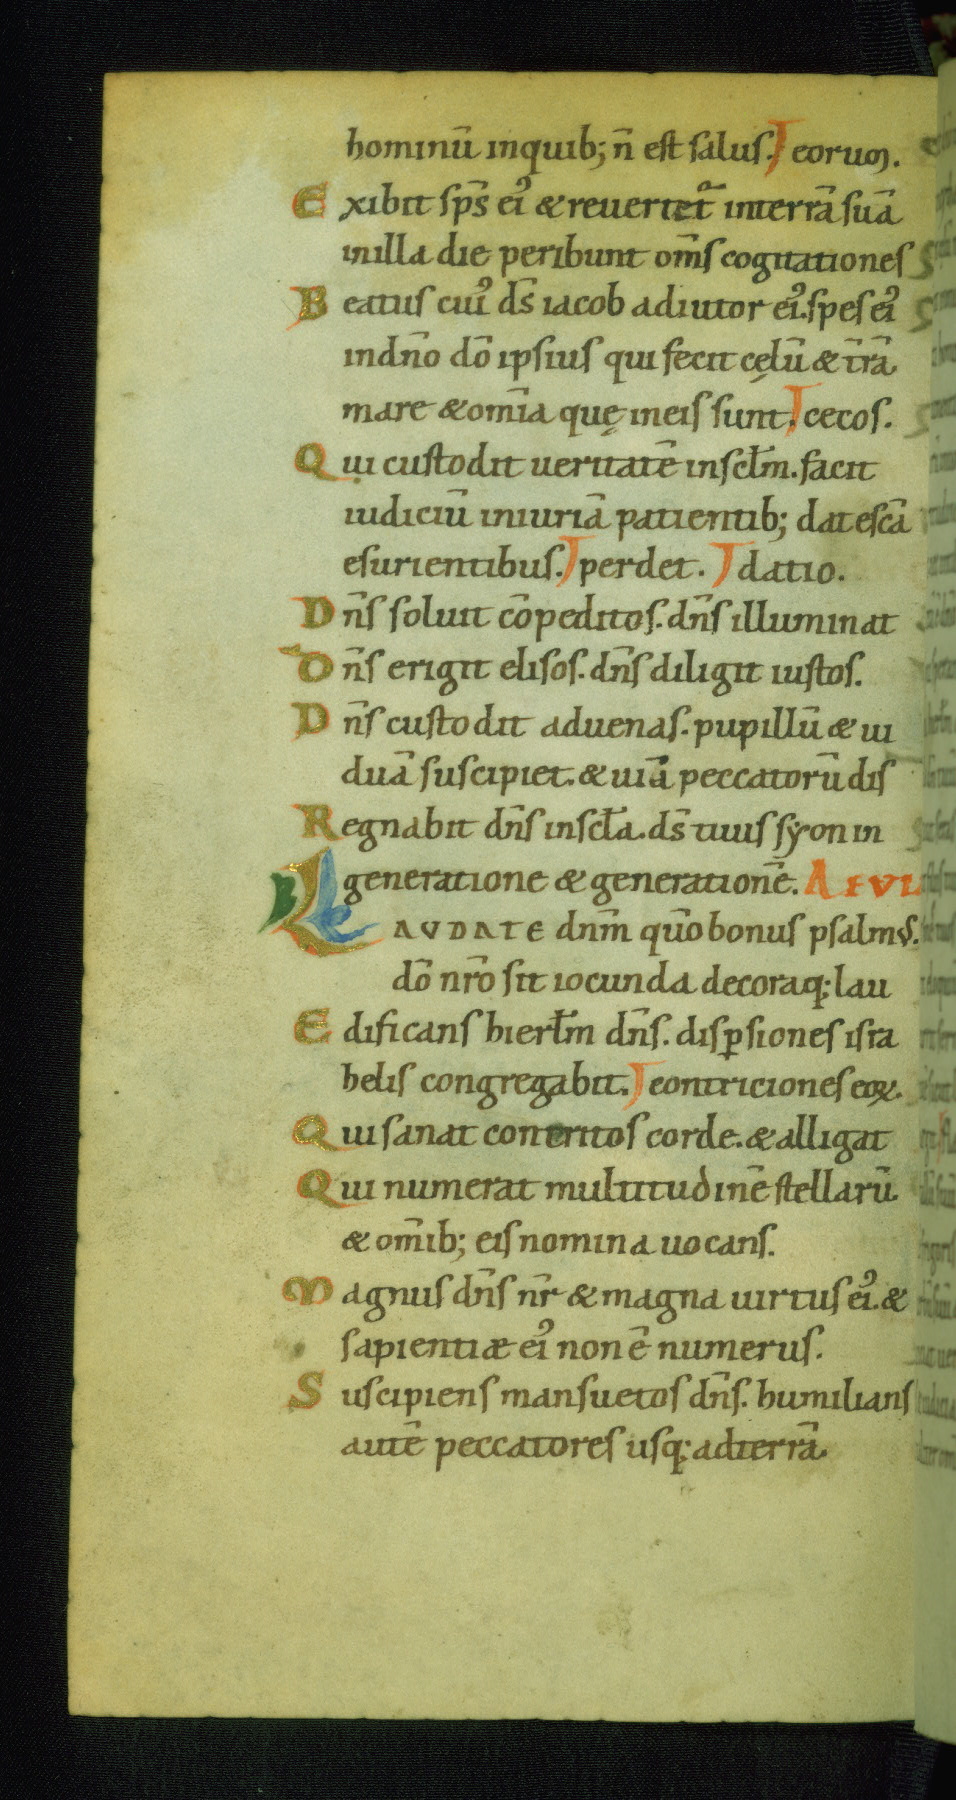 hominū inquib; n̄ est salus. eorum.
Exibit sp̄s ei᾽ & reuertet᷑ interrā suā
inilla die peribunt om̄s cogitationes
Beatus cui᾽ ds̄ iacob adiutor ei᾽. spes ei᾽
indn̄o dō ipsius qui fecit cęlū & t̄rā
mare & om̄ia quę ineis sunt. cecos.
Qui custodit ueritatē inscl̄m. facit
iudiciū iniuriā patientib; dat escā
esurientibus. perdet. datio.
Dn̄s soluit cōpeditos. dn̄s illuminat
Dn̄s erigit elisos. dn̄s diligit iustos.
Dn̄s custodit aduenas. pupillū & ui
duā suscipiet. & uiā peccatorū dis
Regnabit dn̄s inscl̄a. ds̄ tuus syon in
generatione & generationē. AEVIA
LAVDATE dnm̄ quō bonus psalmus.
dō nr̄o sit iocunda decoraq; lau
Edificans hierl̄m dn̄s. disꝑsiones isra
helis congregabit. contriciones eoꝝ.
Qui sanat contritos corde. & alligat
Qui numerat multitudinē stellarū
& om̄ib; eis nomina uocans.
Magnus dn̄s nr̄ & magna uirtus ei᾽. &
sapientiæ ei᾽ non ē numerus.
Suscipiens mansuetos dn̄s. humilians
autē peccatores usq; adterrā.